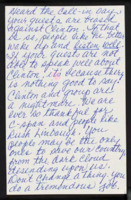 Heard the call-in day.
your guests are biased
against Clinton. It's
so, people like me better
wake up and listen well.
If your guests are not
able to speak well about
Clinton, its because there
is nothing good to say.
Clinton and group are
a nightmare. We are
ever so thankful for
C-span and people like
Rush Limbaugh. You
people may be the only
ones to save our country
from the dark cloud
descending upon us.
Don't change a thing you
do a tremendous job.